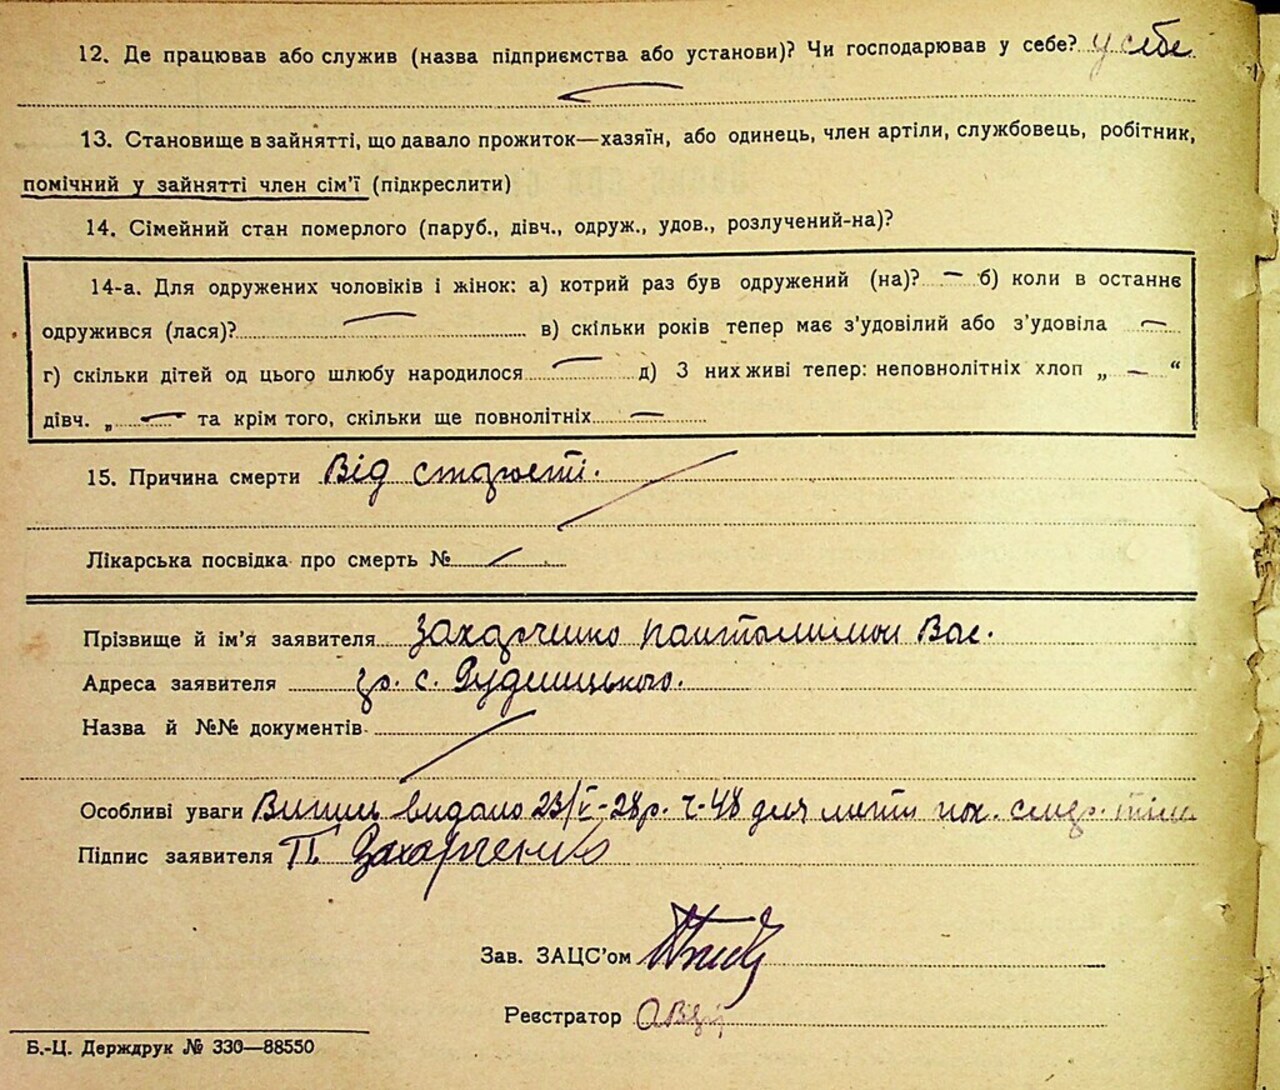 12. Де працював або служив (назва підприємства або установи)? Чи господарював у себе? у себе
13. Становище в зайнятті, що давало прожиток—хазяїн, або одинець, член артіли, службовець, робітник,
помічний у зайнятті член сім’ї (підкреслити)
14. Сімейний стан померлого (паруб., дівч., одруж., удов., розлучений-на)?
14-а. Для одружених чоловіків і жінок: а) котрий раз був одружений (на)? — б) коли в останнє
одружився (лася)? — в) скільки років тепер має з’удовілий або з’удовіла —
г) скільки дітей од цього шлюбу народилося — д) З них живі тепер: неповнолітніх хлоп „ — “
дівч. „ — та крім того, скільки ще повнолітніх —
15. Причина смерти Від старости.
Лікарська посвідка про смерть № —
Прізвище й ім’я заявителя Захарченко Панталимон Вас.
Адреса заявителя гр. с. Рудницького.
Назва й №№ документів
Особливі уваги Витяг видано 23/V-28р. ч-48 для
Підпис заявителя П. Захарченко
Зав. ЗАЦС’ом
Реєстратор
Б.-Ц. Держдрук № 330—88550